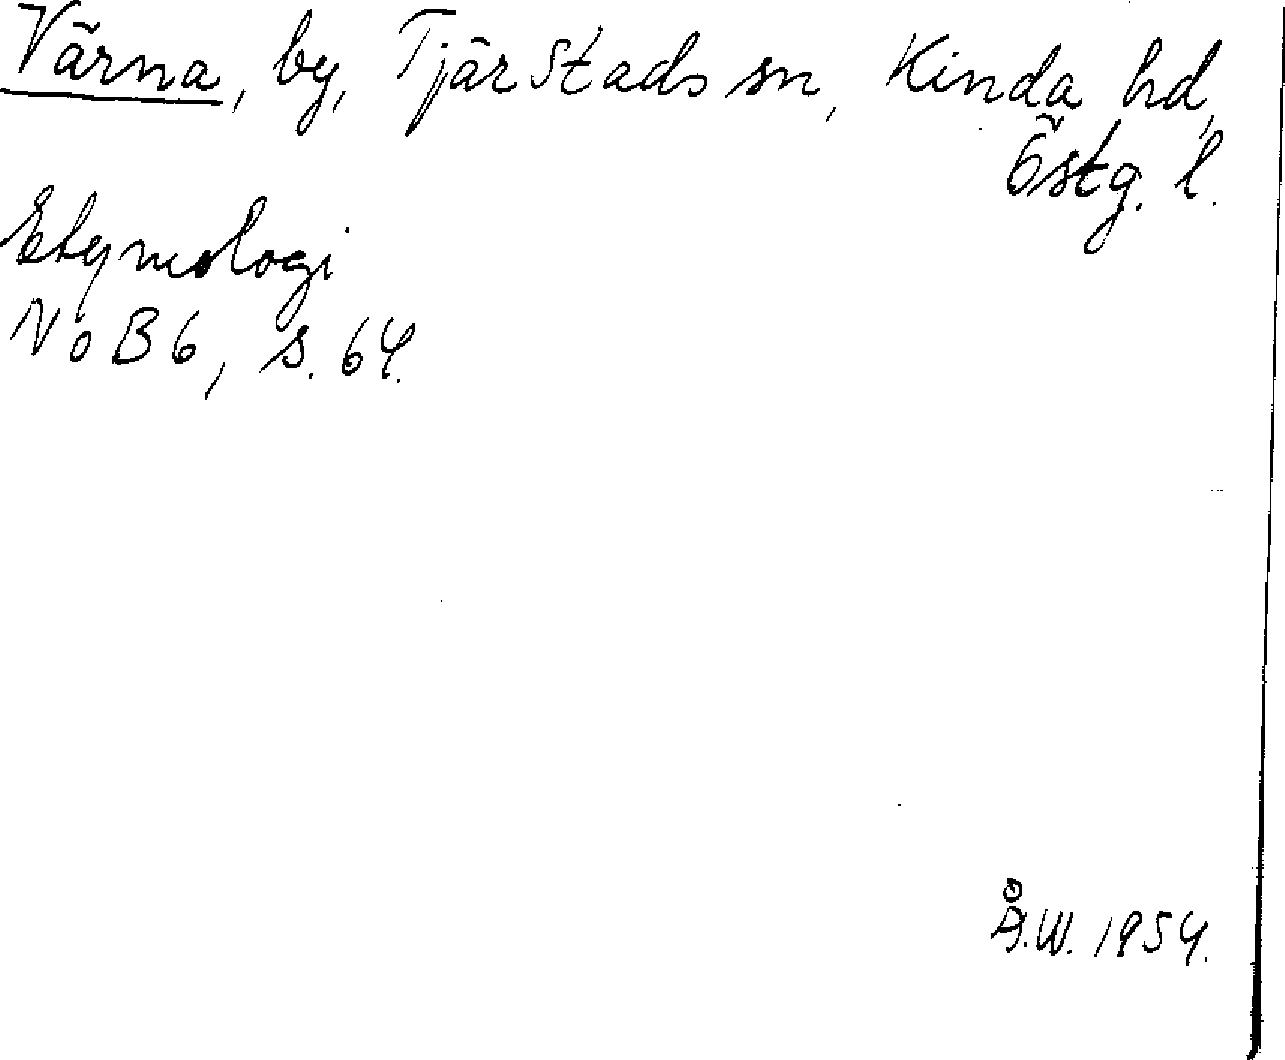 Värna, by, Tjärstads sn, Kinda hd,
Östg. l.
Etymologi
NoB 6, s. 64.
Å.W. 1954.